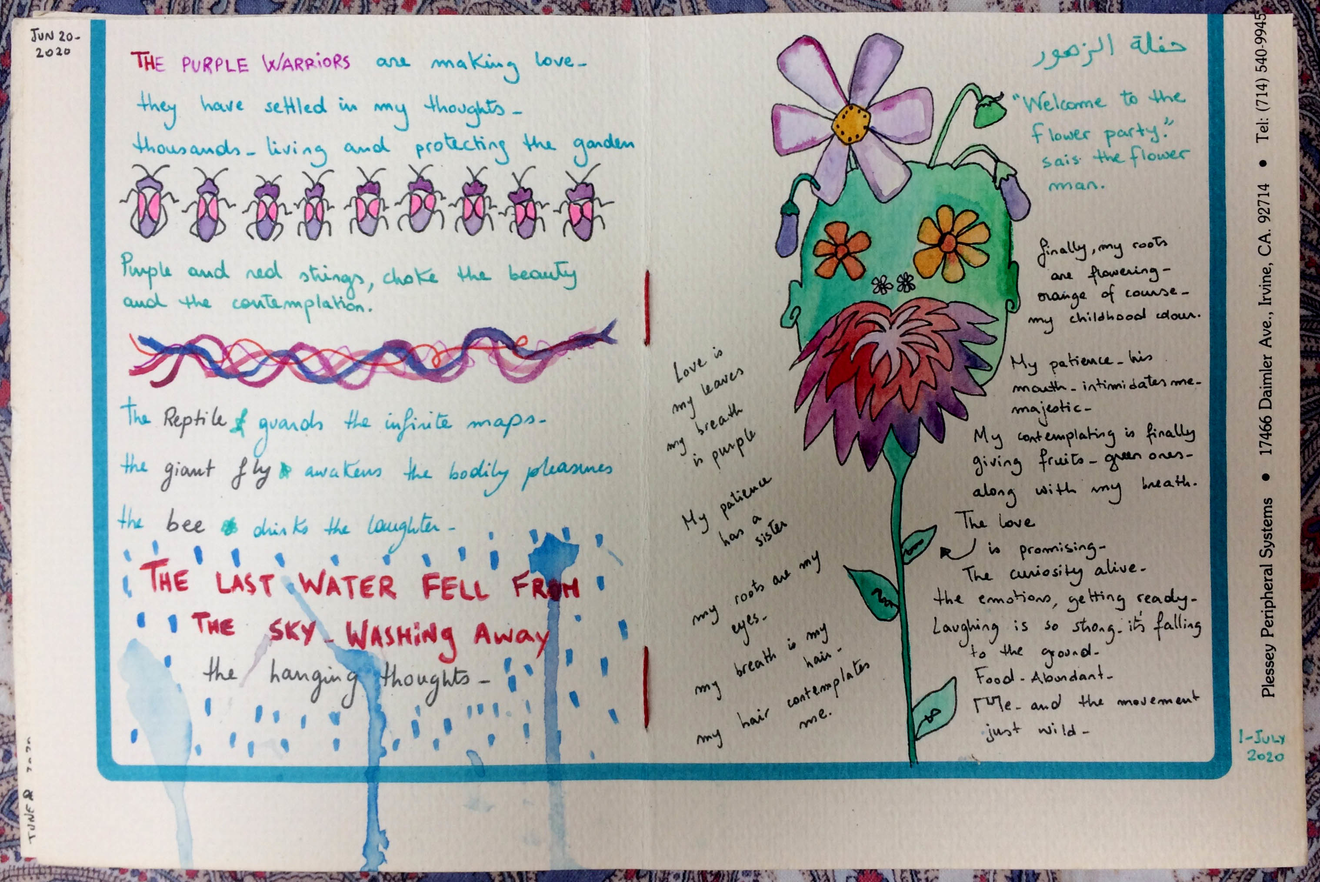 JUN 20-
2020
THE PURPLE WARRIORS are making love-
they have settled in my thoughts-
thousands-living and protecting the garden
Purple and red strings, choke the beauty
and the contemplation.
the Reptile guards the infinite maps-
the giant fly awakens the bodily pleasures
the bee drinks the laughter-
THE LAST WATER FELL FROM
THE SKY-WASHING AWAY
the hanging thoughts-
Love is
my leaves
my breath
is purple
My patience
has a
sister
my roots are my
eyes-
my breath is my
hair-
my hair contemplates
me.
حفلة الزهور
"Welcome to the
flower party."
sais the flower
man.
finally, my roots
are flowering-
orange of course-
my childhood colour.
My patience-his
mouth-intimidates me-
majestic-
My contemplating is finally
giving fruits-green ones-
along with my breath.
The love
is promising-
The curiosity alive-
the emotions, getting ready-
Laughing is so strong-it's falling
to the ground-
Food-Abundant-
Me-and the movement
just wild-
1-JULY
2020
Plessey Peripheral Systems • 17466 Daimler Ave., Irvine, CA. 92714 • Tel: (714) 540-9945